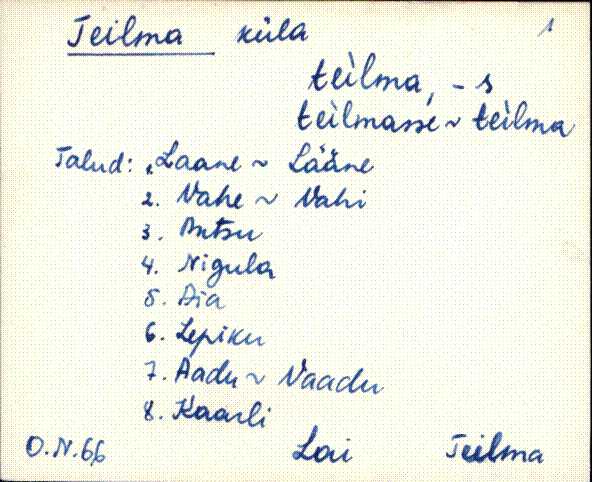 Teilma küla 1
teìlma, -s
teìlmasse ~ teìlma
Talud: 1. Laane ~ Lääne
2. Vahe ~ Vahi
3. Antsu
4. Nigula
5. Aia
6. Lepiku
7. Aadu ~ Vaadu
8. Kaarli
O.N.66 Lai Teilma